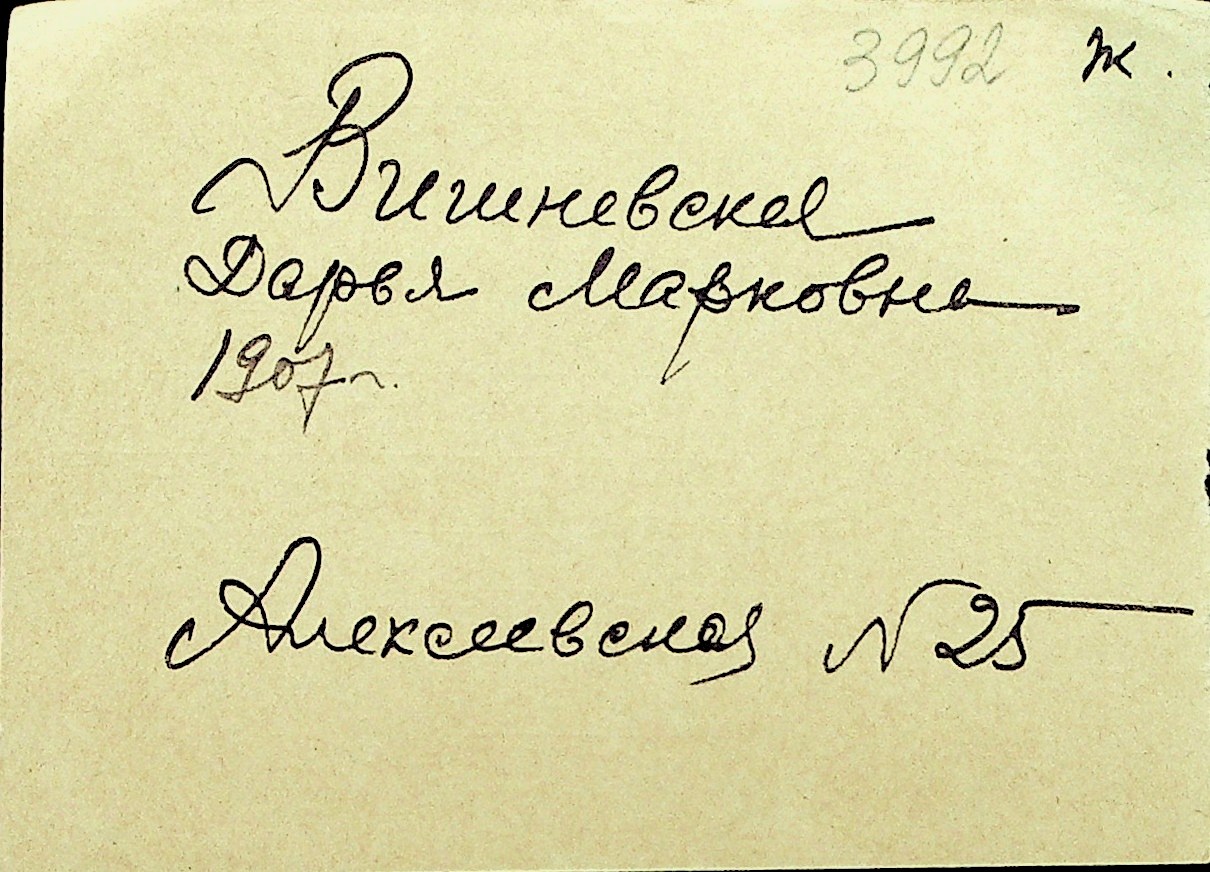 3992 ж.
Вишневская
Дарья Марковна
1907 г.
Алексеевская № 25